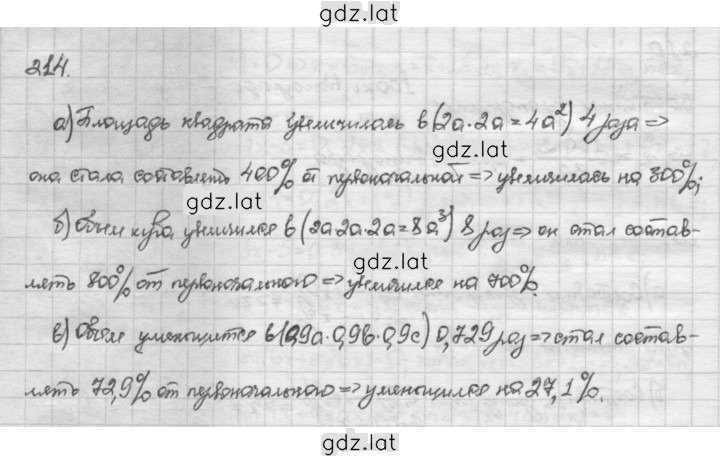 gdz.lat
214.
а) Площадь квадрата увеличилась в (2a·2a=4a²) 4 раза ⇒
gdz.lat
она стала составлять 400% от первоначальной ⇒ увеличилась на 300%;
gdz.lat
б) Объем куба увеличился в (2a·2a·2a=8a³) 8 раз ⇒ он стал состав-
gdz.lat
лять 800% от первоначального ⇒ увеличился на 700%.
в) Объем уменьшится в (0,9a·0,9b·0,9c) 0,729 раз ⇒ стал состав-
gdz.lat
лять 72,9% от первоначального ⇒ уменьшился на 27,1%.
gdz.lat